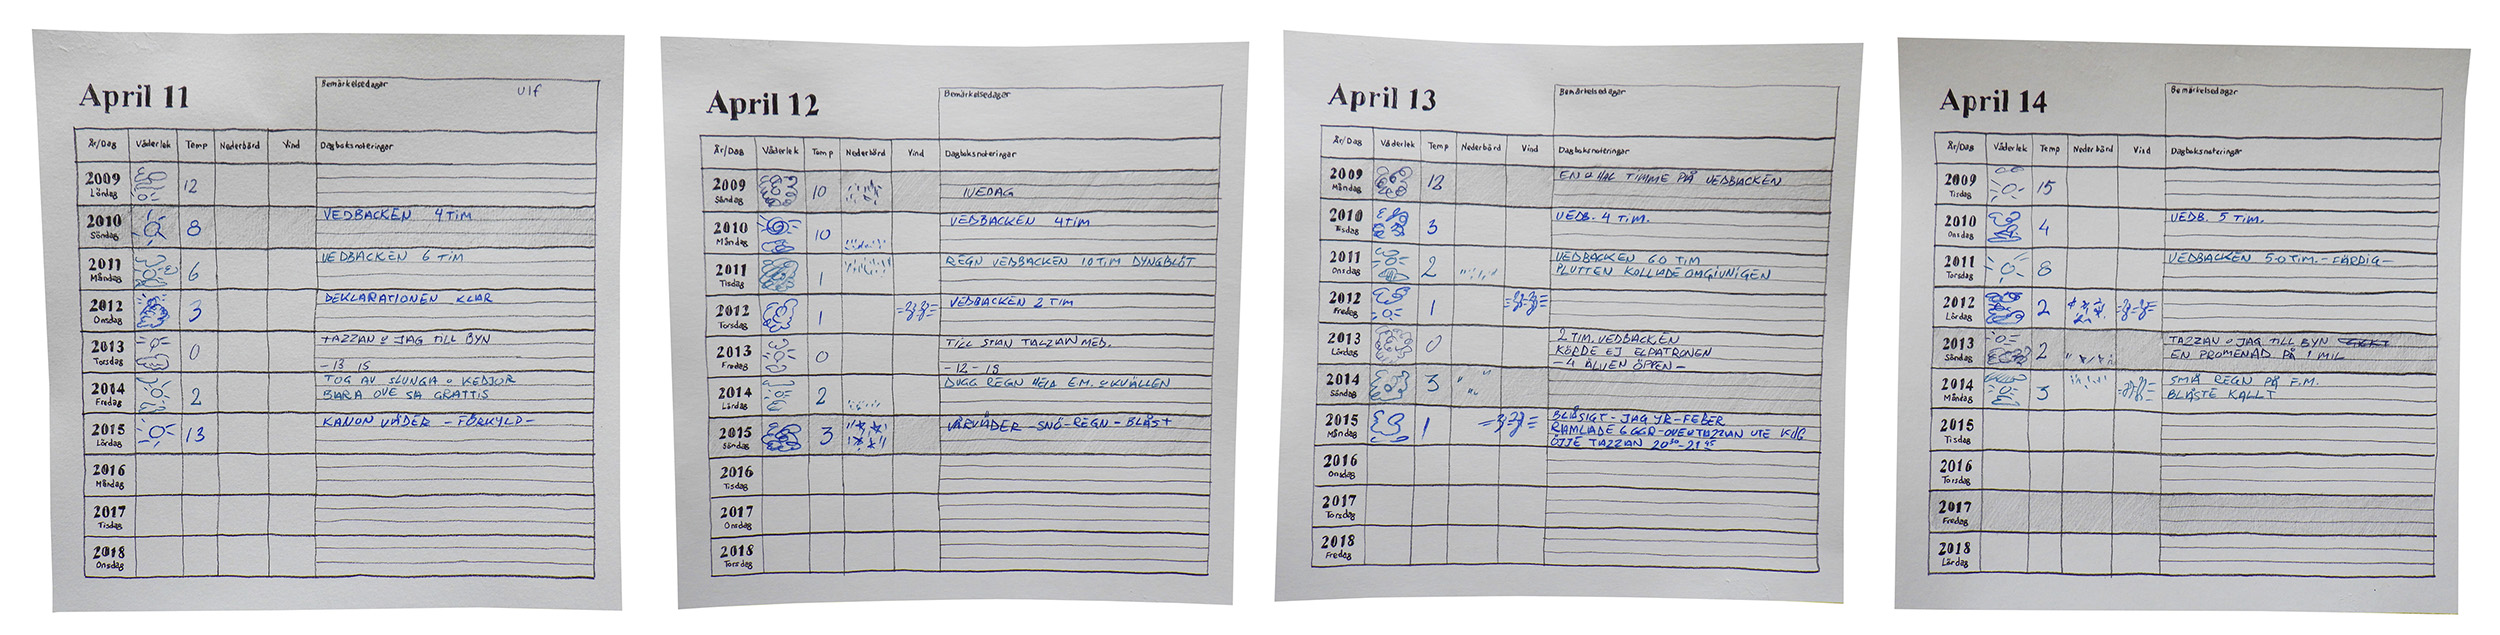 April 11
Bemärkelsedagar
Ulf
År/Dag Väderlek Temp Nederbörd Vind Dagboksnoteringar
2009 12
Lördag
2010 8 VEDBACKEN 4 TIM
Söndag
2011 6 VEDBACKEN 6 TIM
Måndag
2012 3 DEKLARATIONEN KLAR
Onsdag
2013 0 TAZZAN o JAG TILL BYN
Torsdag -13 15
2014 2 TOG AV SLUNGA o KEDJOR
Fredag BARA OVE SA GRATTIS
2015 13 KANON VÄDER -FÖRKYLD-
Lördag
2016
Måndag
2017
Tisdag
2018
Onsdag
April 12
Bemärkelsedagar
År/Dag Väderlek Temp Nederbörd Vind Dagboksnoteringar
2009 10
Söndag
2010 10 VEDBACKEN 4 TIM
Måndag
2011 1 REGN VEDBACKEN 10 TIM DYNGBLÖT
Tisdag
2012 1 VEDBACKEN 2 TIM
Torsdag
2013 0 TILL STAN TAZZAN MED.
Fredag -12-15
2014 2 DUGG REGN HELA E.M. o KVÄLLEN
Lördag
2015 3 VÅRVÄDER -SNÖ-REGN-BLÅST
Söndag
2016
Tisdag
2017
Onsdag
2018
Torsdag
April 13
Bemärkelsedagar
År/Dag Väderlek Temp Nederbörd Vind Dagboksnoteringar
2009 12 EN o HAL TIMME PÅ VEDBACKEN
Måndag
2010 3 VEDB. 4 TIM.
Tisdag
2011 2 VEDBACKEN 60 TIM
Onsdag PLUTTEN KOLLADE OMGIVNIGEN
2012 1
Fredag
2013 0 2 TIM. VEDBACKEN
Lördag KÖRDE EJ ELPATRONEN
-4 ÄLVEN ÖPPEN-
2014 3
Söndag
2015 1 BLÅSIGT-JAG YR-FEBER
Måndag RAMLADE 6 GGR-OVE o TAZZAN UTE
TAZZAN 20 30-21 45
2016
Onsdag
2017
Torsdag
2018
Fredag
April 14
Bemärkelsedagar
År/Dag Väderlek Temp Nederbörd Vind Dagboksnoteringar
2009 15
Tisdag
2010 4 VEDB. 5 TIM.
Onsdag
2011 8 VEDBACKEN 50 TIM.-FÄRDIG-
Torsdag
2012 2
Lördag
2013 2 TAZZAN o JAG TILL BYN
Söndag EN PROMENAD PÅ 1 MIL
2014 3 SMÅ REGN PÅ F.M.
Måndag BLÅSTE KALLT
2015
Tisdag
2016
Torsdag
2017
Fredag
2018
Lördag